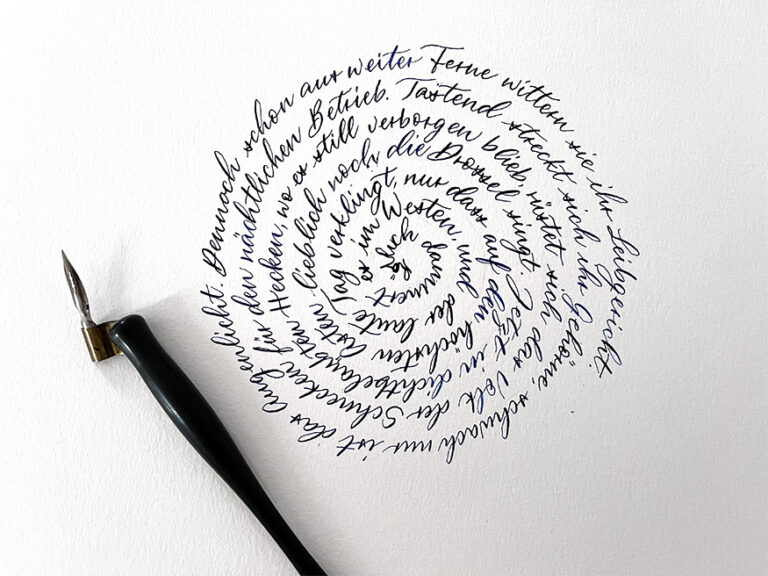 Rötlich dämmert es im Westen, und der laute Tag verklingt, nur dass auf den höchsten Ästen lieblich noch die Drossel singt. Jetzt in dichtbelaubten Hecken, wo es still verborgen blieb, rüstet sich das Volk der Schnecken für den nächtlichen Betrieb. Tastend streckt sich ihr Gehörne, schwach nur ist das Augenlicht. Dennoch schon aus weiter Ferne wittern sie ihr Leibgericht.